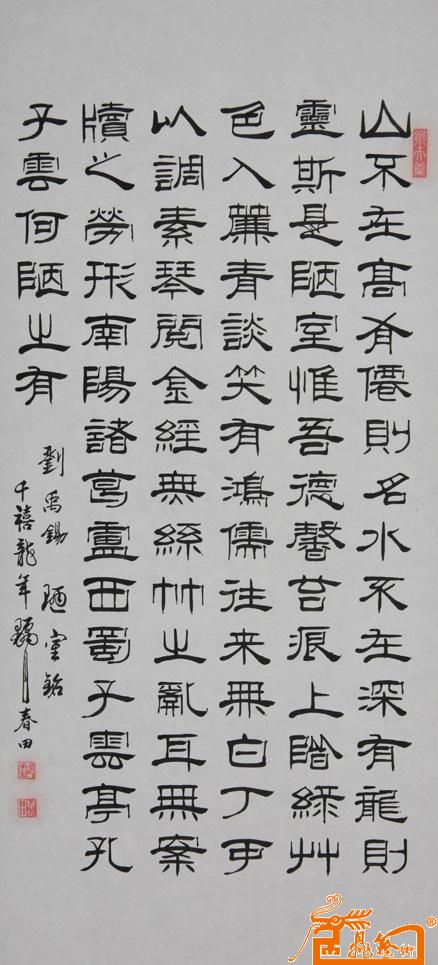 山不在高有僊則名水不在深有龍則
靈斯是陋室惟吾德馨苔痕上階綠艸
色入簾青談笑有鴻儒往来無白丁可
以調素琴閱金經無絲竹之亂耳無案
牘之勞形南陽諸葛盧西蜀子雲亭孔
子雲何陋之有
劉禹錫 陋室銘
千禧龍年 春田